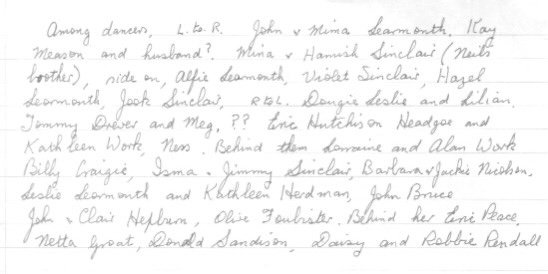 Among dancers, L. to R. John & Mima Learmonth, Kay
Meason and husband?, Mina & Hamish Sinclair (Neil's
brother), side on, Alfie Learmonth, Violet Sinclair, Hazel
Learmonth, Jock Sinclair, R to L. Dougie Leslie and Lilian,
Tommy Drever and Meg, ?? Eric Hutchison Headgoe and
Kathleen Work, Ness. Behind them Lorraine and Alan Work
Billy Craigie, Isma & Jimmy Sinclair, Barbara & Jackie Nicolson,
Leslie Learmonth and Kathleen Herdman, John Bruce
John & Clair Hepburn, Olive Foubister. Behind her Eric Peace,
Netta Groat, Donald Sandison, Daisy and Robbie Rendall